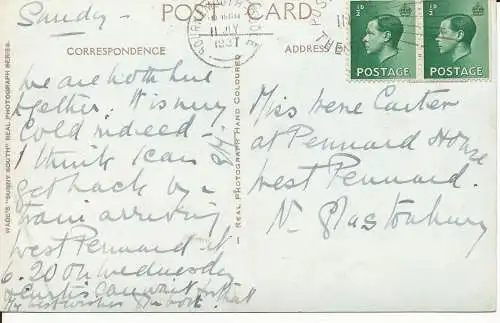 Sunday –
POST CARD
BOURNEMOUTH
11 JLY
1937
CORRESPONDENCE
ADDRESS
½D
½D
POSTAGE
POSTAGE
We are both here
together. It is very
cold indeed –
I think I can
get back by a
train arriving
West Pennard at
6.20 on Wednesday
if Curtis can wait for that
My best wishes
Miss Irene Carter
at Pennard House
West Pennard.
Nr Glastonbury
WADE'S "SUNNY SOUTH" REAL PHOTOGRAPH SERIES.
— REAL PHOTOGRAPH HAND COLOURED —